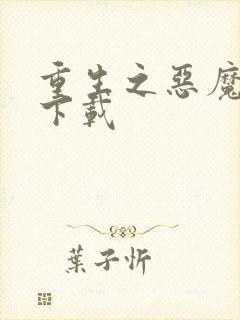 重生之惡魔
下載
葉子忻